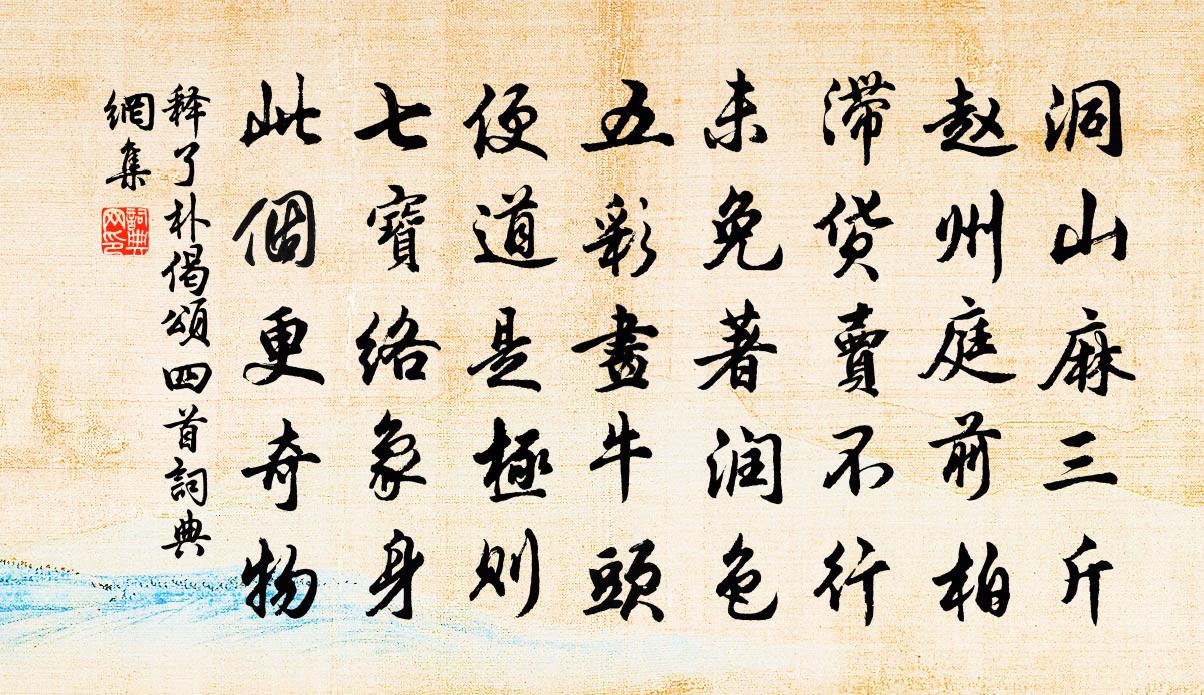 洞山麻三斤
赵州庭前柏
滞货賣不行
未免著润色
五彩畫牛頭
便道是極则
七寶络象身
此個更奇物
释了朴偈頌四首詞典
網集
詞典
网印